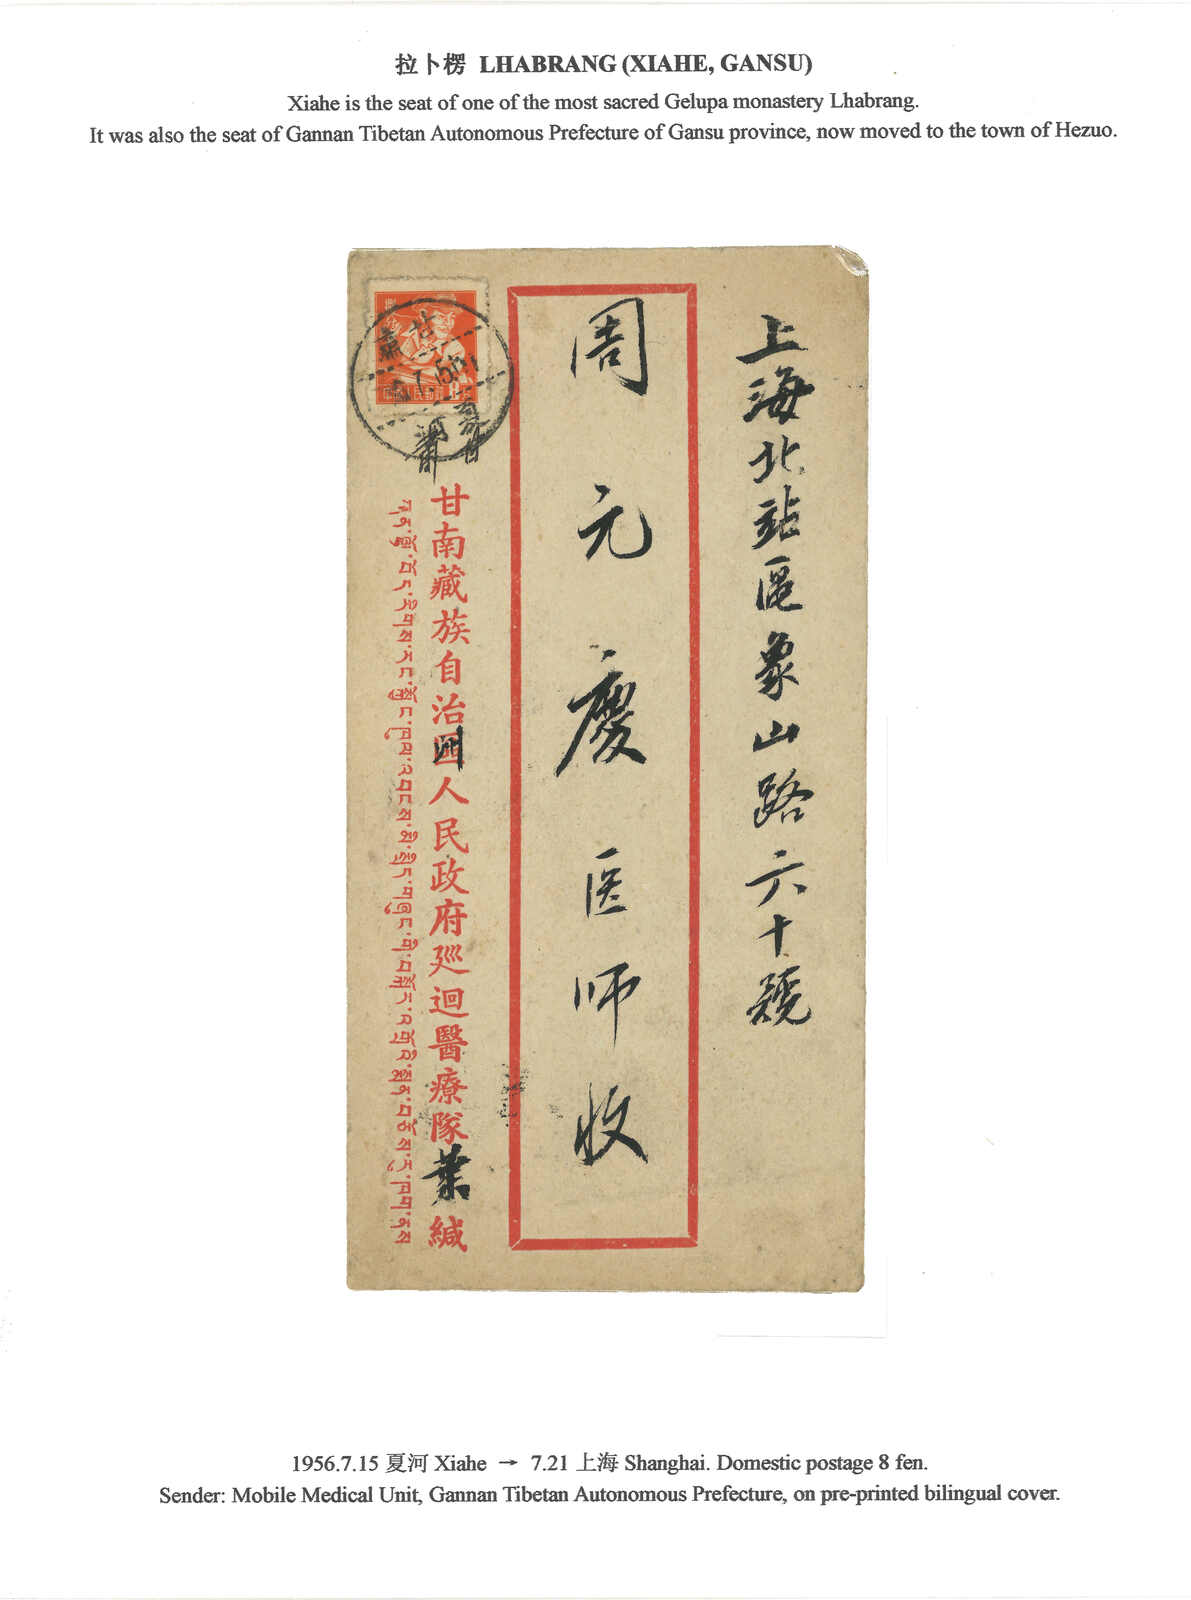 拉卜楞 LHABRANG (XIAHE, GANSU)
Xiahe is the seat of one of the most sacred Gelupa monastery Lhabrang.
It was also the seat of Gannan Tibetan Autonomous Prefecture of Gansu province, now moved to the town of Hezuo.
上海北站區象山路六十號
周元慶医师收
甘肅
夏河
甘南藏族自治州人民政府廵迴醫療隊葉緘
1956.7.15 夏河 Xiahe → 7.21 上海 Shanghai. Domestic postage 8 fen.
Sender: Mobile Medical Unit, Gannan Tibetan Autonomous Prefecture, on pre-printed bilingual cover.